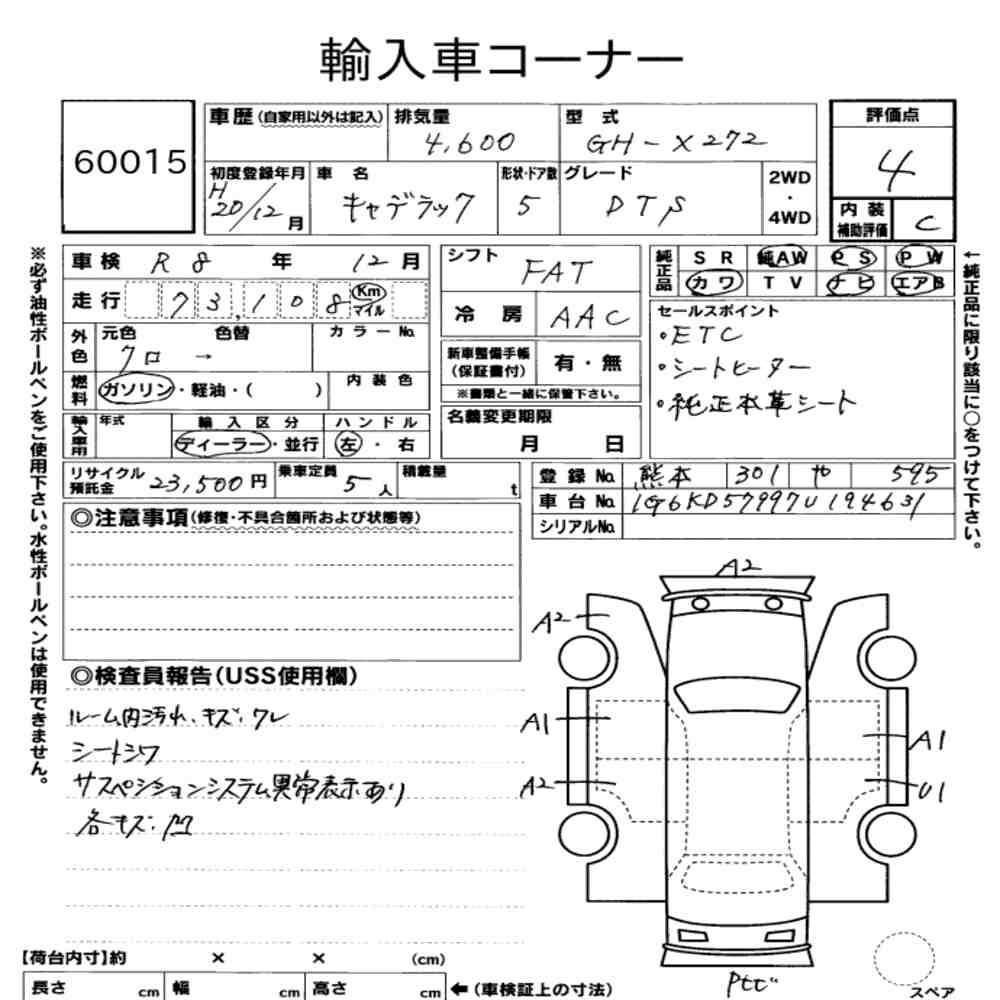 輸入車コーナー
60015
車歴(自家用以外は記入)
排気量
4,600
型式
GH-X272
評価点
4
初度登録年月
H
20/12月
車名
キャデラック
形状・ドア数
5
グレード
DTS
2WD
・
4WD
内装
補助評価
C
車検 R8年 12月
走行 73,108 Km
マイル
外色
元色
クロ
色替
→
カラーNo.
燃料
ガソリン・軽油・( )
内装色
輸入車用
年式
輸入区分
ディーラー・並行
ハンドル
左・右
リサイクル
預託金
23,500円
乗車定員
5人
積載量
t
シフト
FAT
冷房
AAC
新車整備手帳
(保証書付)
有・無
※書類と一緒に保管下さい。
名義変更期限
月 日
純正品
SR 純AW PS PW
カワ TV ナビ エアB
セールスポイント
・ETC
・シートヒーター
・純正本革シート
登録No. 熊本 301 や 595
車台No. 1G6KD57997U194631
シリアルNo.
◎注意事項(修復・不具合箇所および状態等)
◎検査員報告(USS使用欄)
ルーム内汚れ、キズ・ワレ
シートシワ
サスペンションシステム異常表示あり
各キズ・凹
※必ず油性ボールペンをご使用下さい。水性ボールペンは使用できません。
←純正品に限り該当に○をつけて下さい。
A2
A2
A1
A2
A1
U1
スペア
【荷台内寸】約 × × (cm)
長さ cm 幅 cm 高さ cm ←(車検証上の寸法)